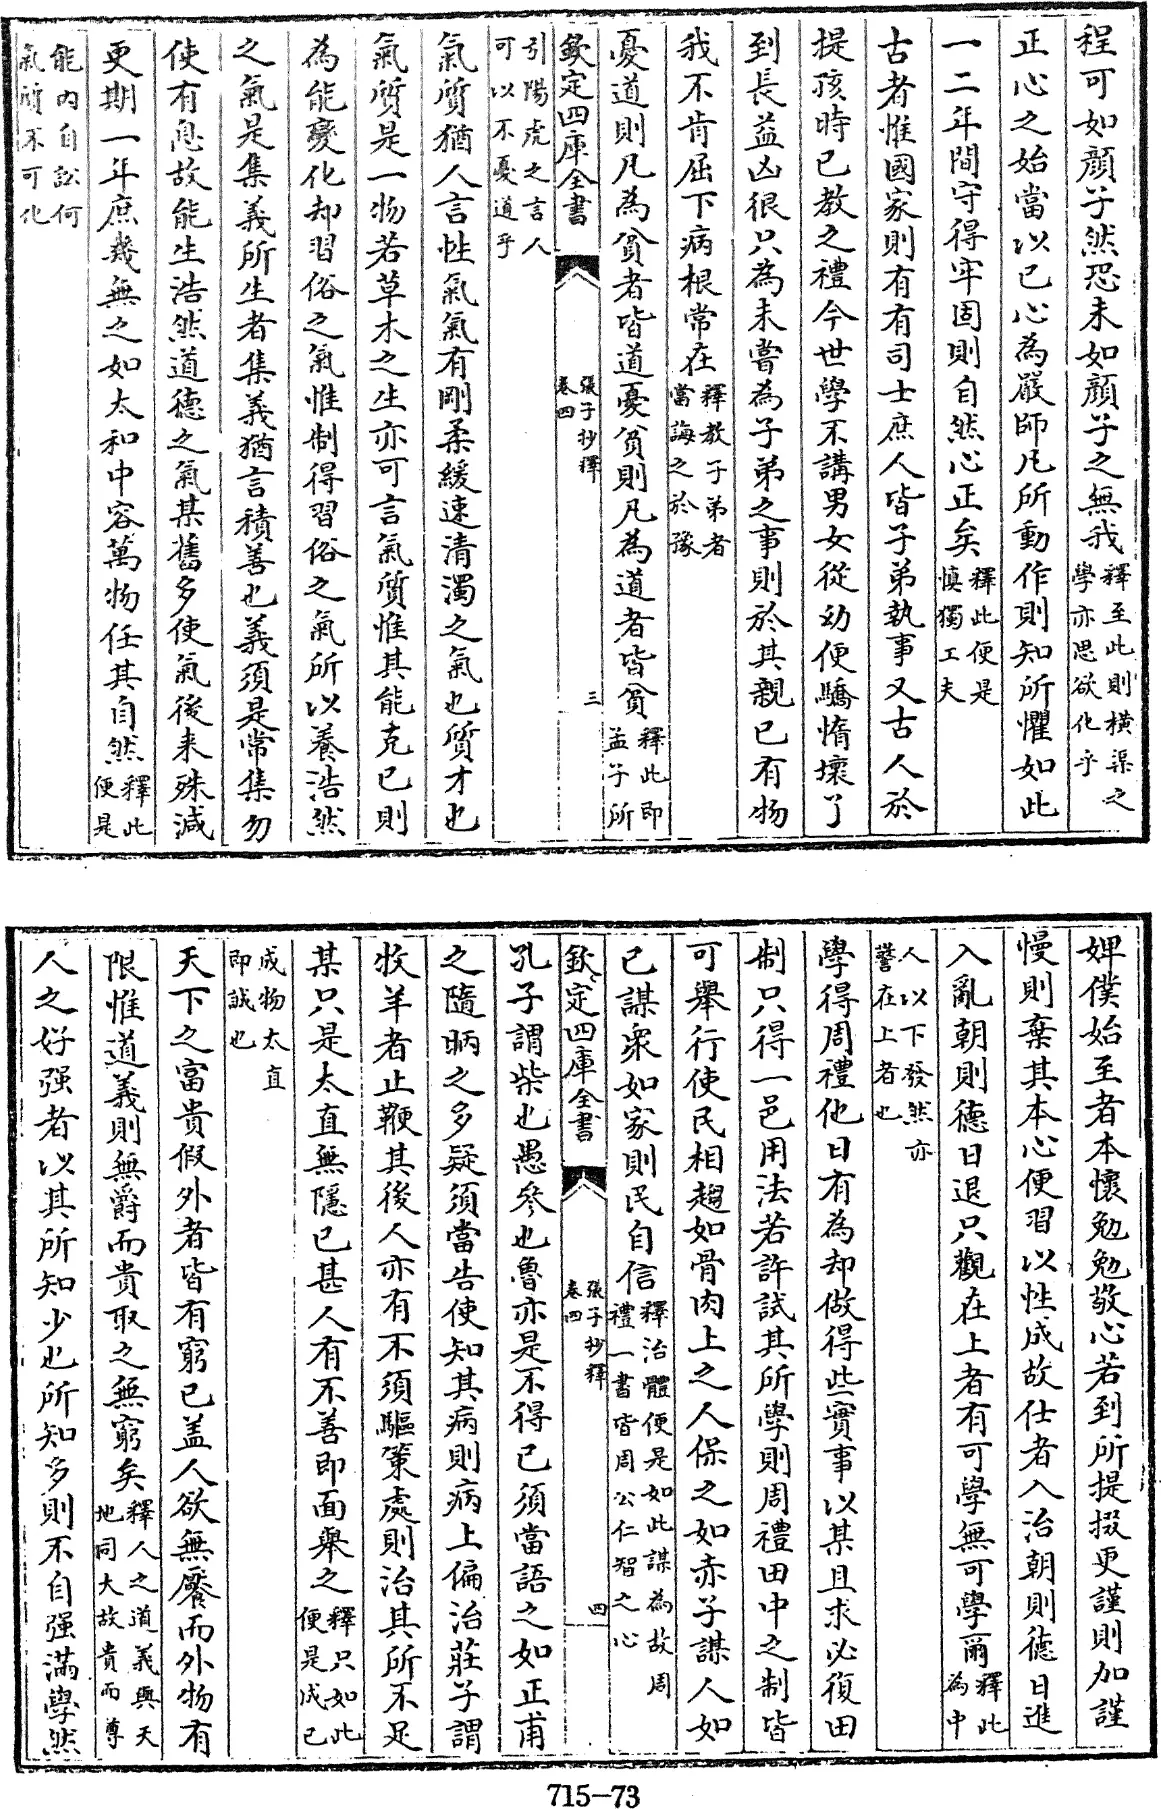 程可如顔子然恐未如顔子之無我釋至此則横渠之學亦思欲化乎
正心之始當以已心為嚴師凡所動作則知所懼如此
一二年間守得牢固則自然心正矣釋此便是慎獨工夫
古者惟國家則有有司士庶人皆子弟執事又古人於
提孩時已教之禮今世學不講男女從幼便驕惰壞了
到長益凶很只為未嘗為子弟之事則於其親已有物
我不肯屈下病根常在釋教子弟者當誨之於豫
憂道則凡為貧者皆道憂貧則凡為道者皆貧釋此即孟子所
欽定四庫全書 張子抄釋卷四 三
引陽虎之言人可以不憂道乎
氣質猶人言性氣氣有剛柔緩速清濁之氣也質才也
氣質是一物若草木之生亦可言氣質惟其能克已則
為能變化却習俗之氣惟制得習俗之氣所以養浩然
之氣是集義所生者集義猶言積善也義須是常集勿
使有息故能生浩然道德之氣某舊多使氣後来殊減
更期一年庶幾無之如太和中容萬物任其自然釋此便是
能内自訟何氣質不可化
婢僕始至者本懷勉勉敬心若到所提掇更謹則加謹
慢則棄其本心便習以性成故仕者入治朝則德日進
入亂朝則德日退只觀在上者有可學無可學爾釋此為中
人以下發然亦警在上者也
學得周禮他日有為却做得些實事以某且求必復田
制只得一邑用法若許試其所學則周禮田中之制皆
可舉行使民相趨如骨肉上之人保之如赤子謀人如
已謀衆如家則民自信釋治體便是如此謀為故周禮一書皆周公仁智之心
欽定四庫全書 張子抄釋卷四 四
孔子謂柴也愚參也魯亦是不得已須當語之如正甫
之隨昞之多疑須當告使知其病則病上偏治莊子謂
牧羊者止鞭其後人亦有不須驅策處則治其所不足
某只是太直無隱已甚人有不善即面舉之釋只如此便是成已
成物太直即誠也
天下之富貴假外者皆有窮已盖人欲無饜而外物有
限惟道義則無爵而貴取之無窮矣釋人之道義與天地同大故貴而尊
人之好强者以其所知少也所知多則不自强滿學然
715-73